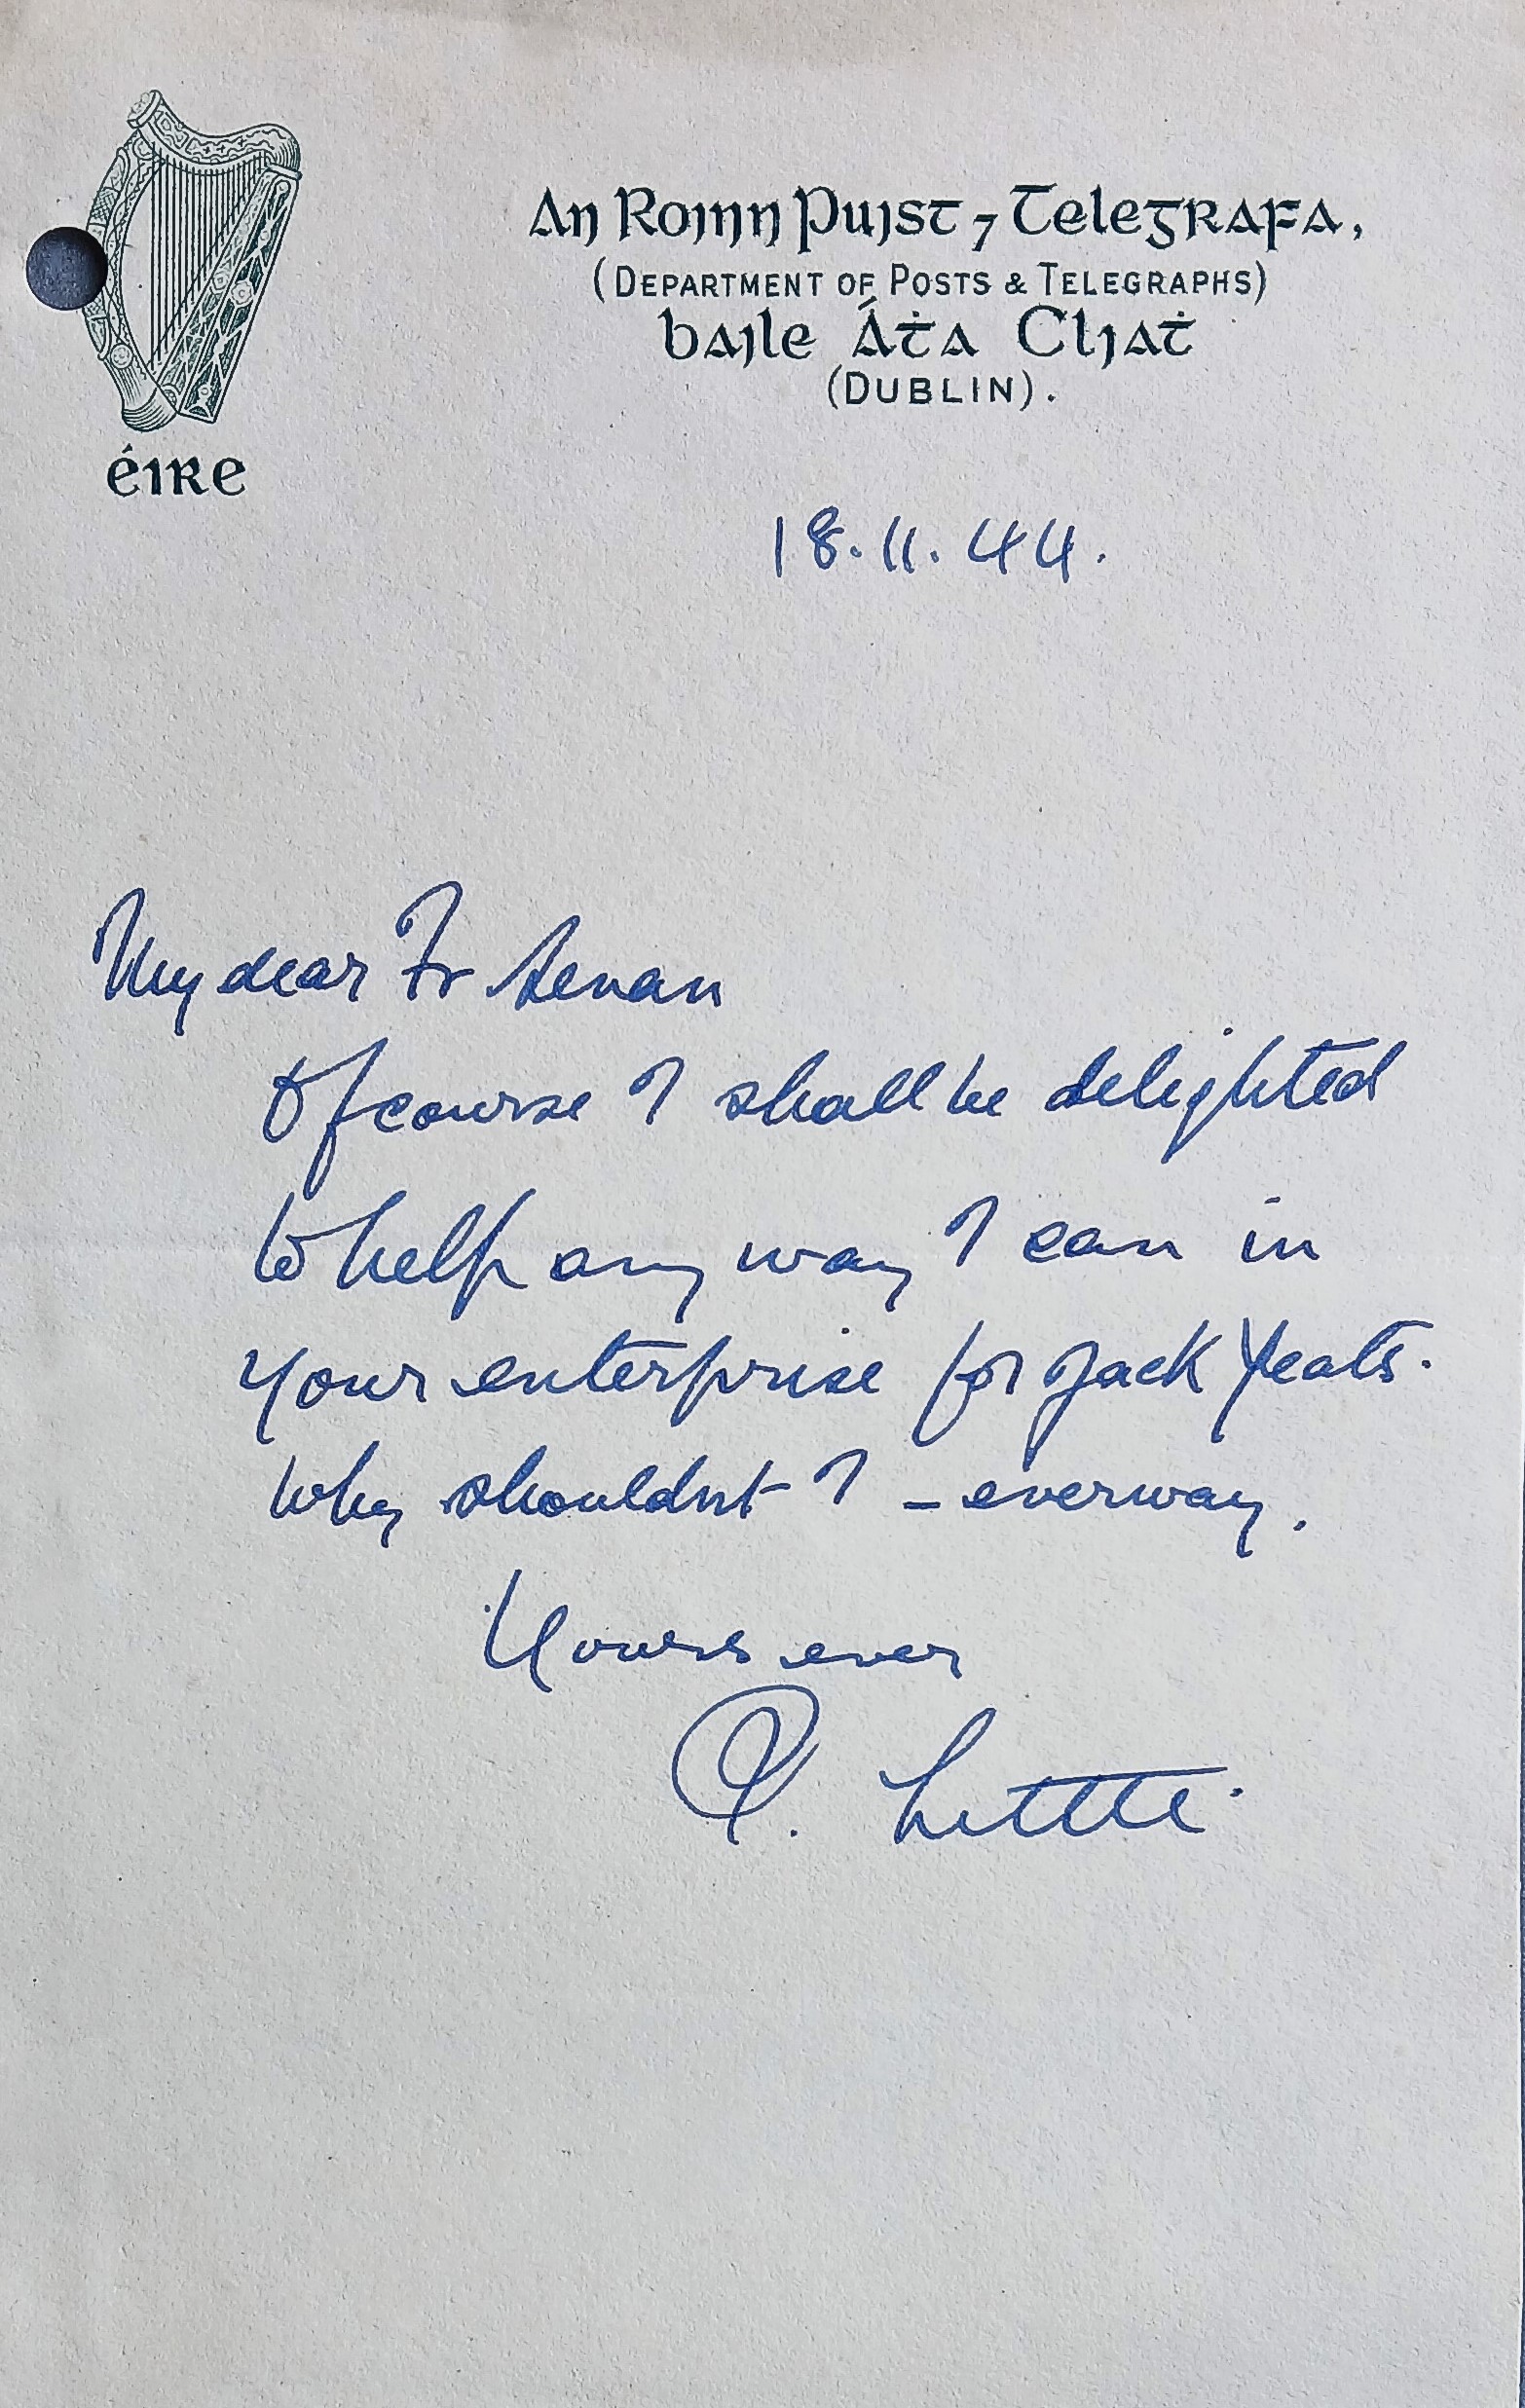 An Roinn Puist ⁊ Telegrafa,
(Department of Posts & Telegraphs)
baile Áṫa Cliaṫ
(Dublin).
éire
18.11.44.
My dear Fr Senan
Of course I shall be delighted
to help any way I can in
your enterprise for Jack Yeats.
Why shouldnt I – everway.
Yours ever
P. Little.